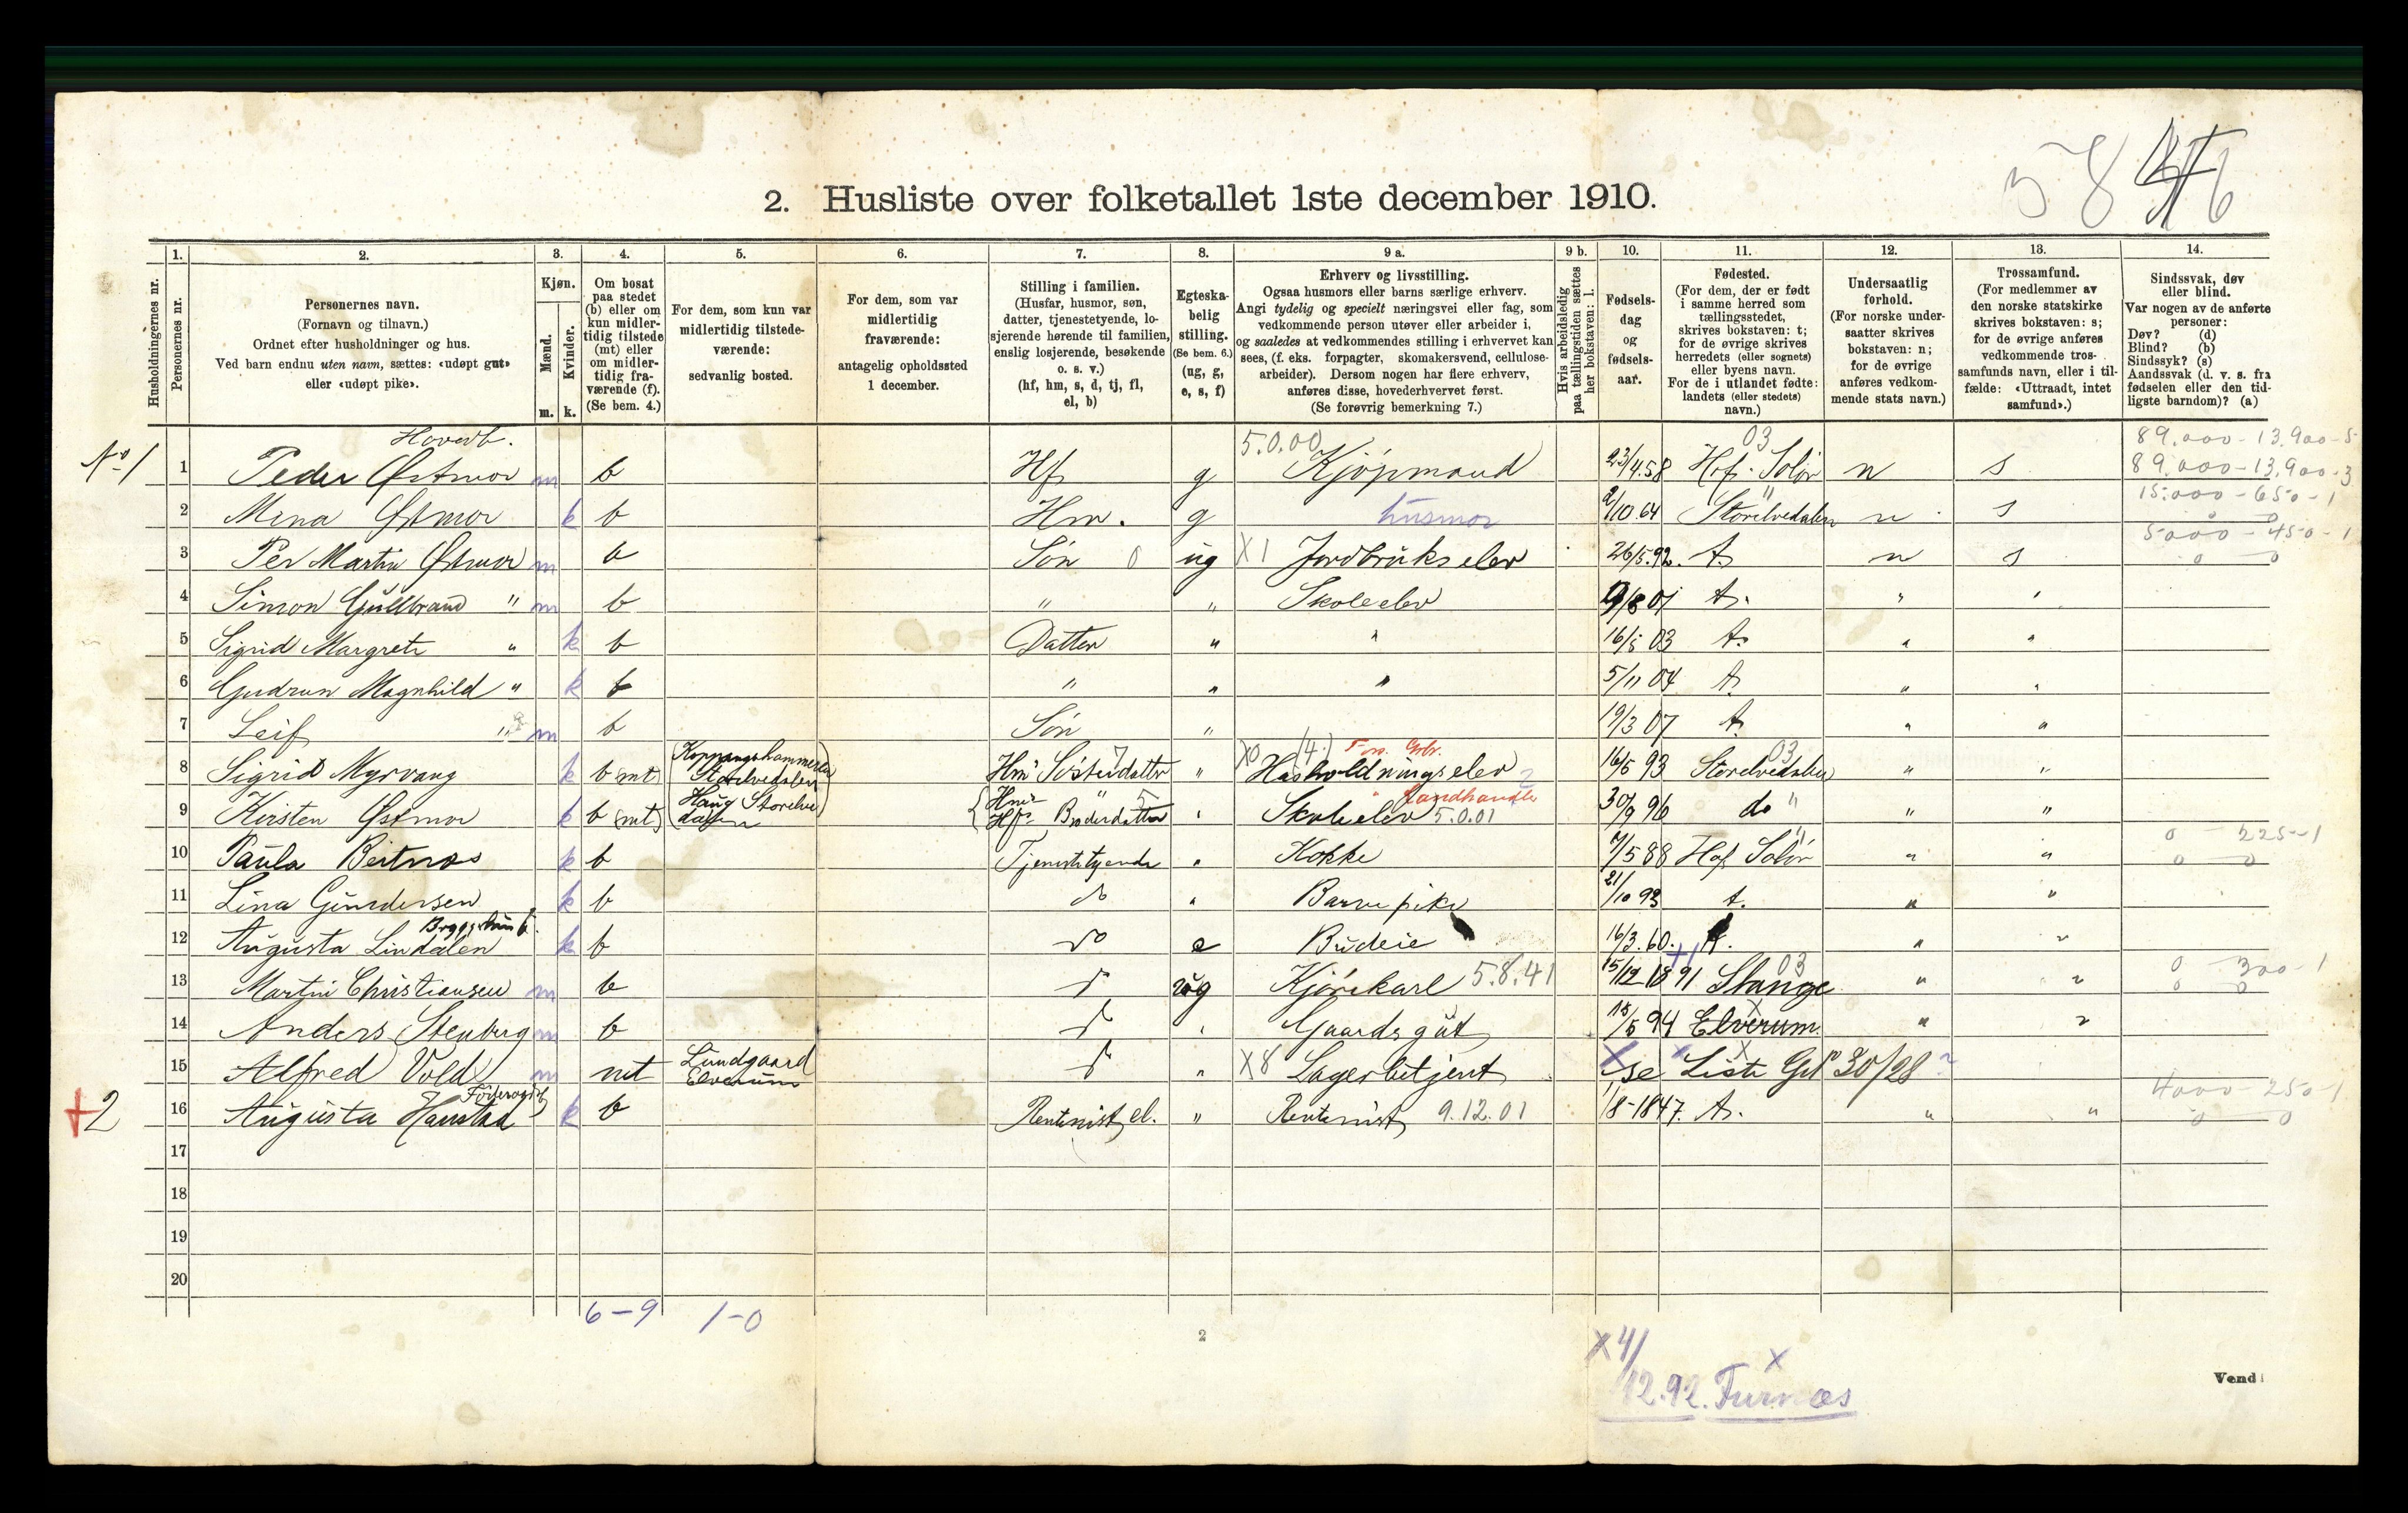 58 46
2. Husliste over folketallet 1ste december 1910.
1. 2. 3. 4. 5. 6. 7. 8. 9 a. 9 b. 10. 11. 12. 13. 14.
Husholdningernes nr.
Personernes nr.
Personernes navn.
(Fornavn og tilnavn.)
Ordnet efter husholdninger og hus.
Ved barn endnu uten navn, sættes: «udøpt gut»
eller «udøpt pike».
Kjøn.
Mænd.
Kvinder.
m. k.
Om bosat
paa stedet
(b) eller om
kun midler-
tidig tilstede
(mt) eller
om midler-
tidig fra-
værende (f).
(Se bem. 4.)
For dem, som kun var
midlertidig tilstede-
værende:
sedvanlig bosted.
For dem, som var
midlertidig
fraværende:
antagelig opholdssted
1 december.
Stilling i familien.
(Husfar, husmor, søn,
datter, tjenestetyende, lo-
sjerende hørende til familien,
enslig losjerende, besøkende
o. s. v.)
(hf, hm, s, d, tj, fl,
el, b)
Egteska-
belig
stilling.
(Se bem. 6.)
(ug, g,
e, s, f)
Erhverv og livsstilling.
Ogsaa husmors eller barns særlige erhverv.
Angi tydelig og specielt næringsvei eller fag, som
vedkommende person utøver eller arbeider i,
og saaledes at vedkommendes stilling i erhvervet kan
sees, (f. eks. forpagter, skomakersvend, cellulose-
arbeider). Dersom nogen har flere erhverv,
anføres disse, hovederhvervet først.
(Se forøvrig bemerkning 7.)
Hvis arbeidsledig
paa tællingstiden sættes
her bokstaven: l.
Fødsels-
dag
og
fødsels-
aar.
Fødested.
(For dem, der er født
i samme herred som
tællingsstedet,
skrives bokstaven: t;
for de øvrige skrives
herredets (eller sognets)
eller byens navn.
For de i utlandet fødte:
landets (eller stedets)
navn.)
Undersaatlig
forhold.
(For norske under-
saatter skrives
bokstaven: n;
for de øvrige
anføres vedkom-
mende stats navn.)
Trossamfund.
(For medlemmer av
den norske statskirke
skrives bokstaven: s;
for de øvrige anføres
vedkommende tros-
samfunds navn, eller i til-
fælde: «Uttraadt, intet
samfund».)
Sindssvak, døv
eller blind.
Var nogen av de anførte
personer:
Døv? (d)
Blind? (b)
Sindssyk? (s)
Aandssvak (d. v. s. fra
fødselen eller den tid-
ligste barndom)? (a)
Hovedb. 5.0.00 03 89.000-13.900-5
No 1 1 Peder Østmor m b Hf g Kjøpmand 23/4.58 Hof Solør n s 89.000-13.900-3
15.000-650-1
2 Mina Østmor k b Hm. g husmor 2/10.64 Storelvedalen n s 0 0
5000-450-1
3 Per Martin Østmor m b Søn 0 ug X1 Jordbrukselev 26/5.92. t. n s 0 0
4 Simon Gullbrand " m b " " Skoleelev 9/8 01 t. " "
5 Sigrid Margrete " k b Datter " " 16/5 03 t. " "
6 Gudrun Magnhild " k b " " " 5/11 04 t. " "
7 Leif " m b Søn " 19/3 07 t. " "
Koppangskammeren X0 (4.) 03
8 Sigrid Myrvang k b (mt) Storelvedalen Hm's Søsterdatter 7 " Husholdningselev 16/5 93 Storelvedalen " "
Haug Storelve Hm's " 5 Landhandler
9 Kirsten Østmor k b (mt) dalen Hf's Broderdatter " Skoleelev 5.0.01 30/9 96 do " " "
0 225-1
10 Paula Beitnes k b Tjenestetyende " Kokke 7/5 88 Hof Solør " " 0 0
11 Lina Gundersen k b do " Barnepike 21/10 93 t. " "
Bryggerhus b.
12 Augusta Lindalen k b do e Budeie 16/3.60. t. " "
03 0 300-1
13 Martin Christiansen m b do ug Kjørekarl 5.8.41 15/12 1891 Stange " " 0 0
14 Anders Stenberg m b do " Gaardsgut 15/5 94 Elverum " "
Lundgaard
15 Alfred Vold m mt Elverum do " X8 Lagerbetjent se Liste Gd 30/28
Føderaadsb. 4000-250-1
+2 16 Augusta Hanstad k b Rentenist el. " Rentenist 9.12.01 1/8-1847. t. " " 0 0
17
18
19
20
6-9 1-0
2
X 4/12.92. Furnæs
Vend!